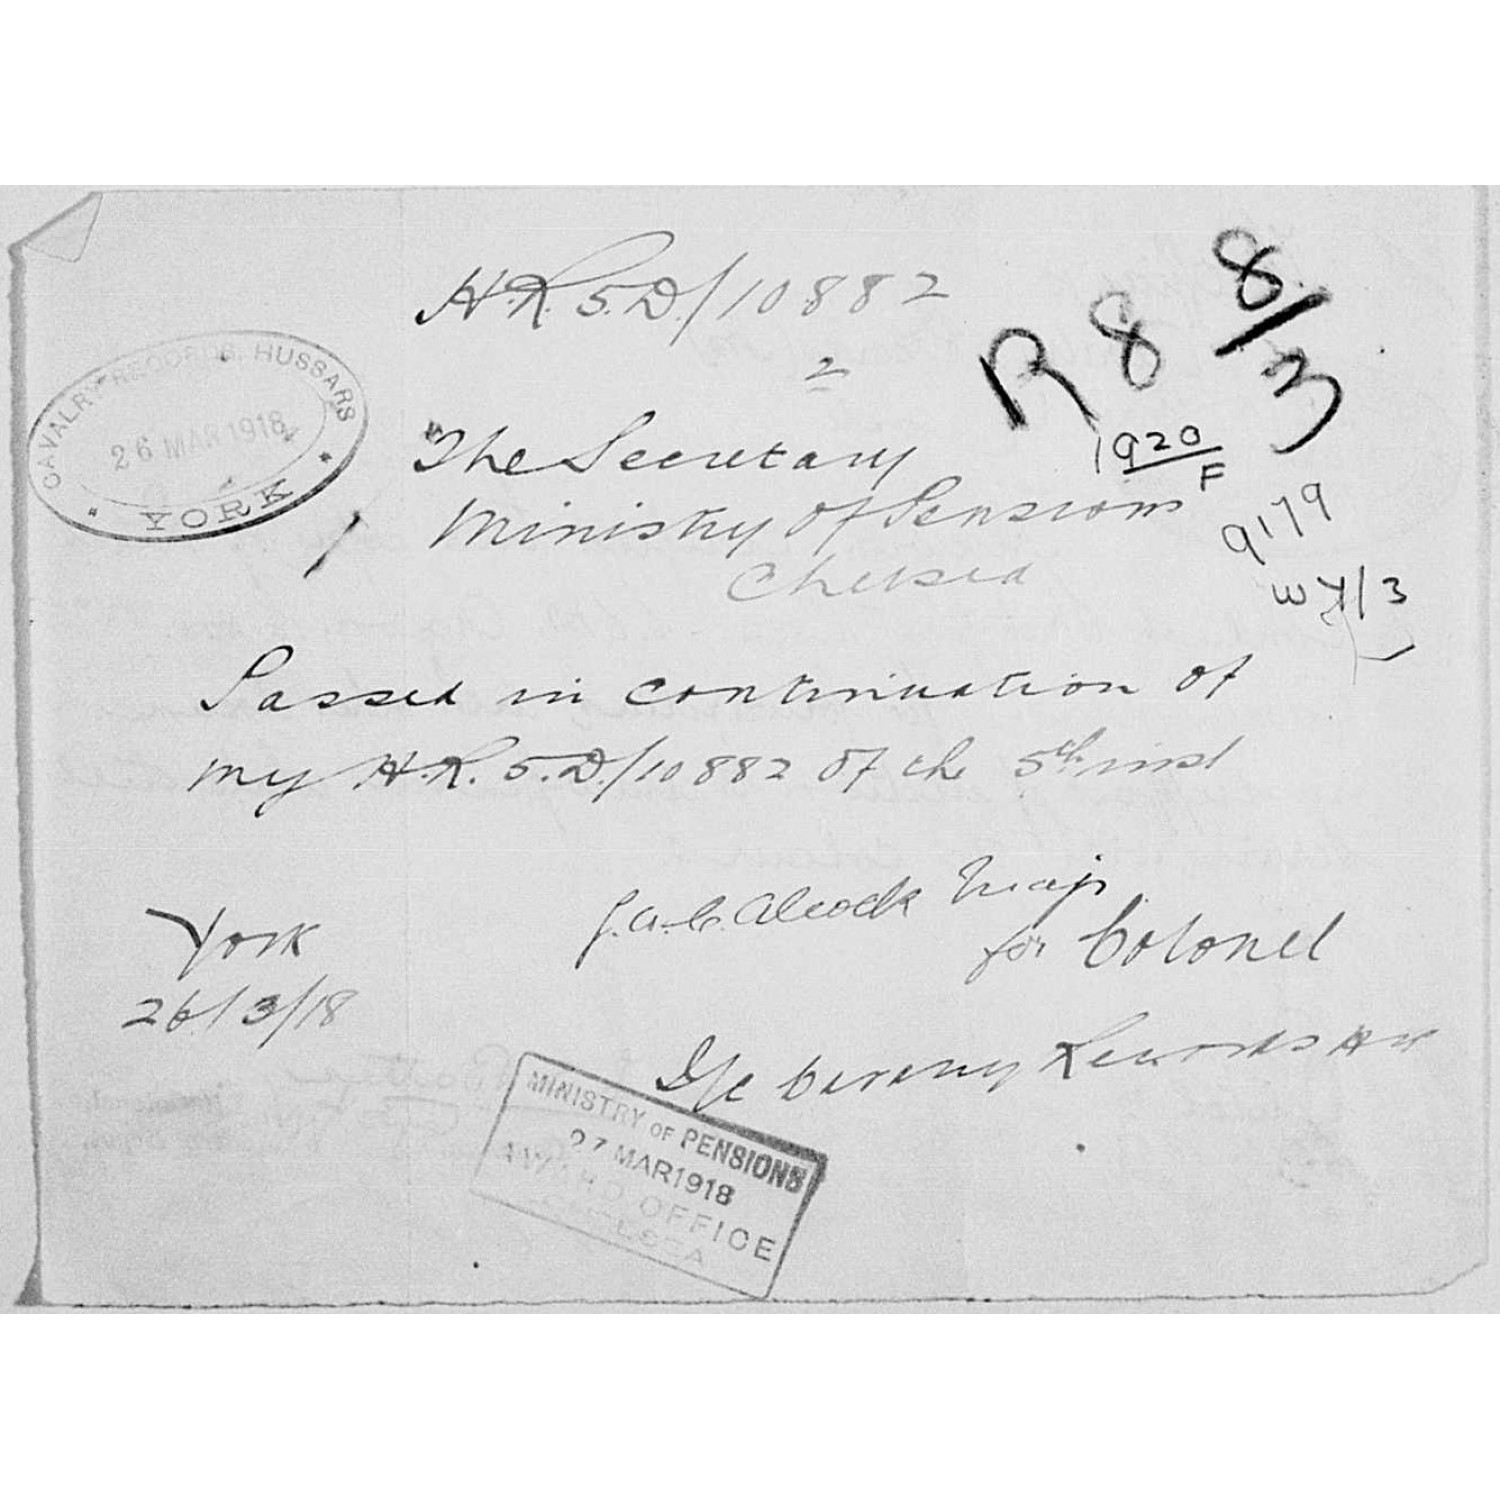 H.R. 5.D./10882
2
R 8 8/3
CAVALRY RECORDS, HUSSARS
26 MAR 1918
* YORK *
The Secretary
1920
F
Ministry of Pensions
9179
Chelsea
Passed in continuation of
my H.R. 5.D./10882 of the 5th inst
J.A.C. Alcock Maj.
for Colonel
York
26/3/18
I/c Cavalry Records
MINISTRY OF PENSIONS
27 MAR 1918
AWARD OFFICE
CHELSEA